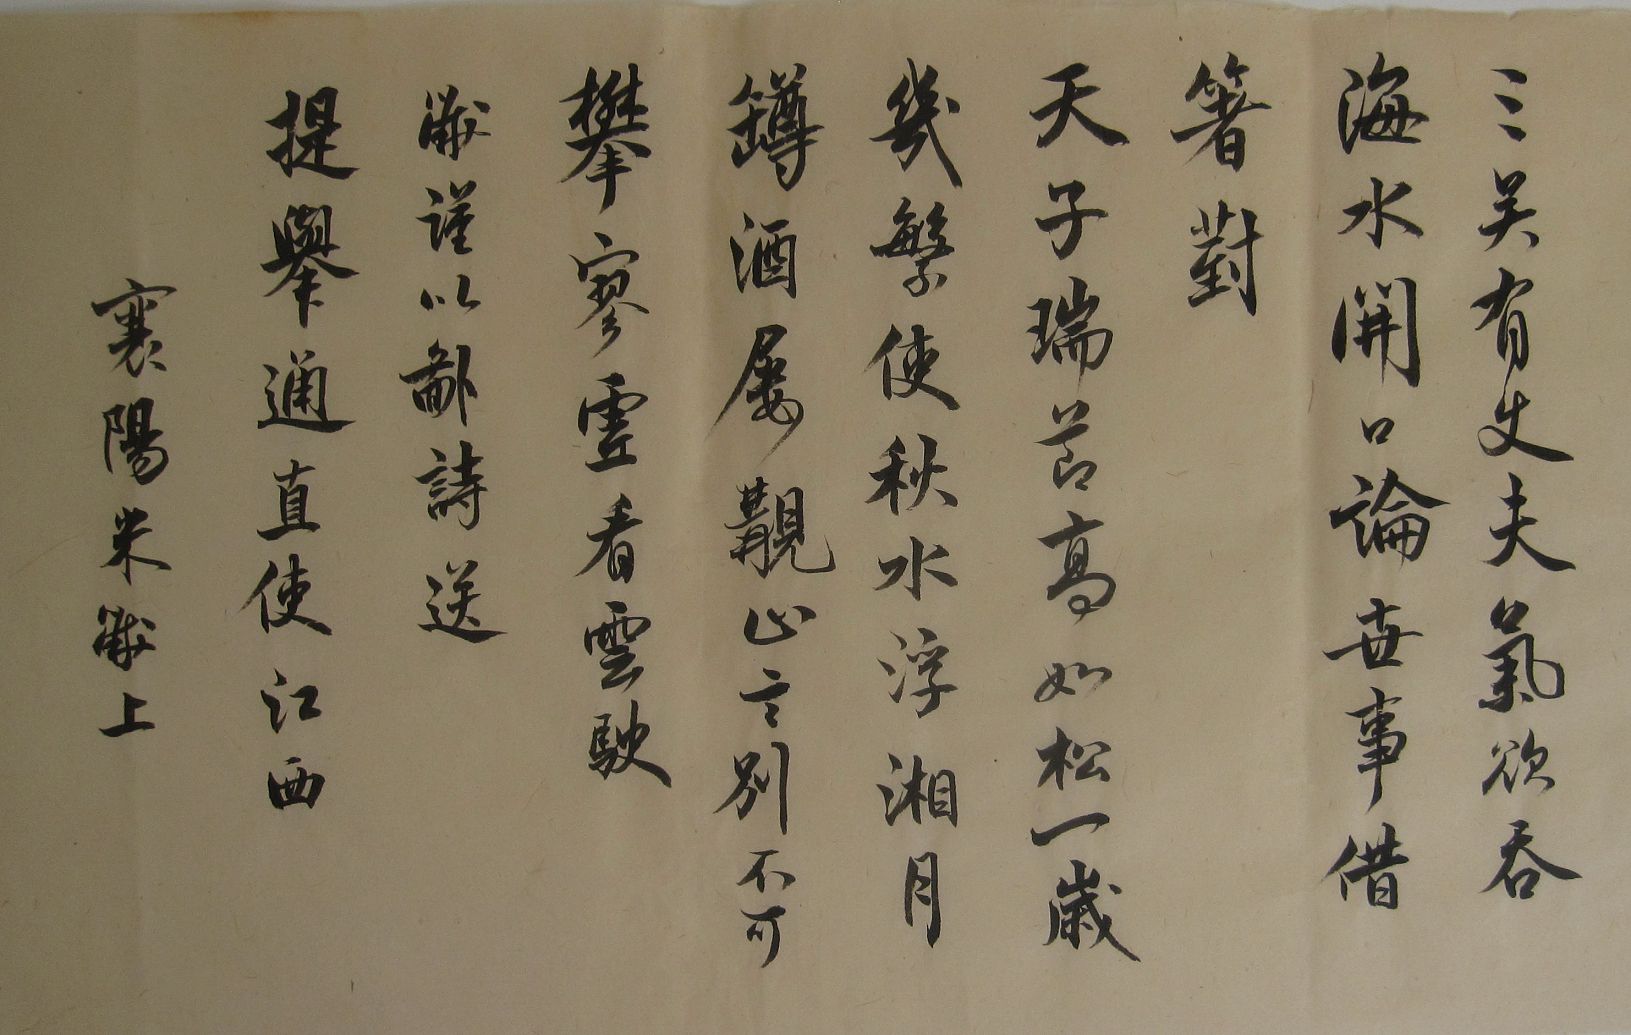 三吴有丈夫氣欲吞
海水開口論世事借
箸對
天子瑞節高如松一歲
幾繁使秋水浮湘月
罇酒屢觀止言別不可
攀寥霊看雲駛
黻謹以鄙詩送
提舉通直使江西
襄陽米黻上